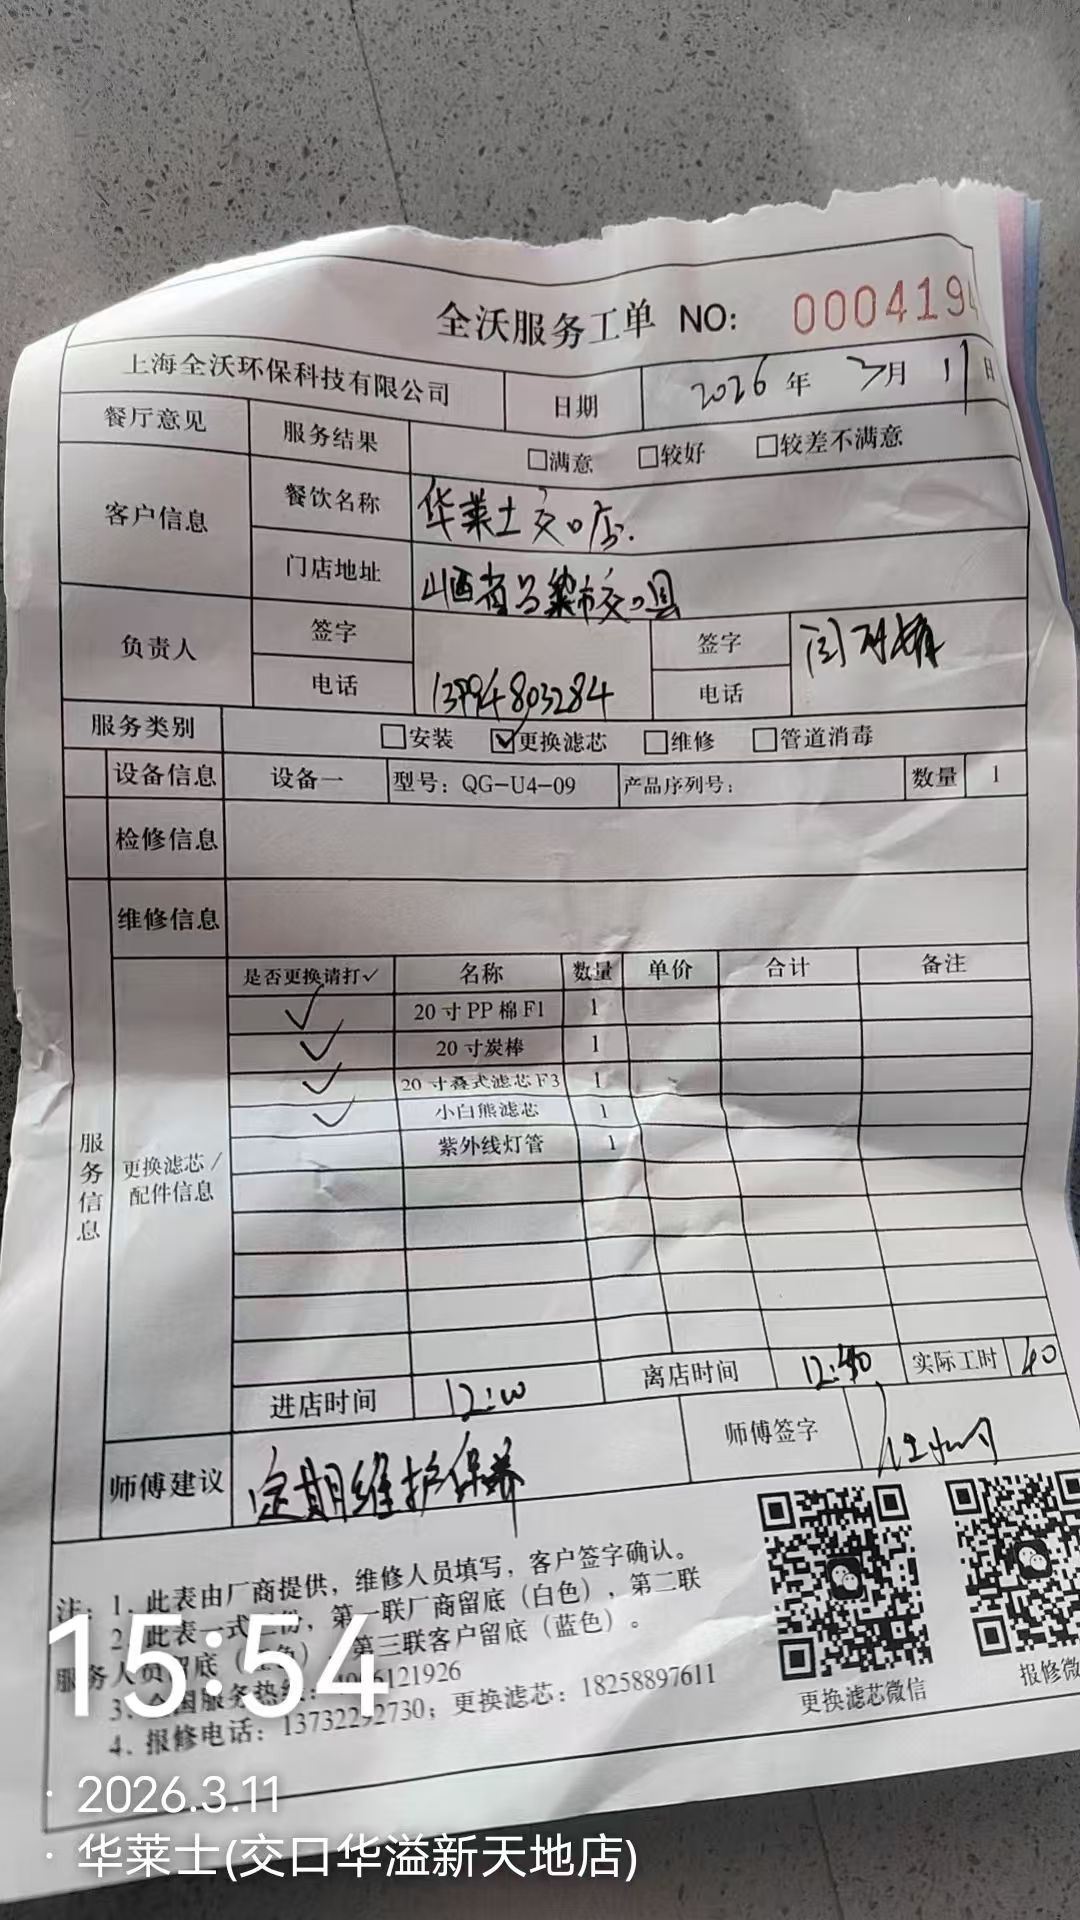 全沃服务工单 NO: 0004194
上海全沃环保科技有限公司 日期 2026年 3月 11日
餐厅意见 服务结果 □满意 □较好 □较差不满意
客户信息 餐饮名称 华莱士交口店.
门店地址 山西省吕梁市交口县
负责人 签字 签字 闫
电话 13994803284 电话
服务类别 □安装 ☑更换滤芯 □维修 □管道消毒
设备信息 设备一 型号: QG-U4-09 产品序列号: 数量 1
检修信息
维修信息
服务信息
更换滤芯/
配件信息
是否更换请打✓ 名称 数量 单价 合计 备注
✓ 20寸PP棉F1 1
✓ 20寸炭棒 1
✓ 20寸叠式滤芯F3 1
✓ 小白熊滤芯 1
紫外线灯管 1
进店时间 12:00 离店时间 12:40 实际工时 40
师傅建议 定期维护保养 师傅签字
注: 1. 此表由厂商提供，维修人员填写，客户签字确认。
2. 此表一式 份，第一联厂商留底（白色），第二联
服务人员留底（ 色），第三联客户留底（蓝色）。
3. 全国服务热线: 6121926
4. 报修电话: 13732292730; 更换滤芯: 18258897611
更换滤芯微信
报修微
15:54
· 2026.3.11
· 华莱士(交口华溢新天地店)